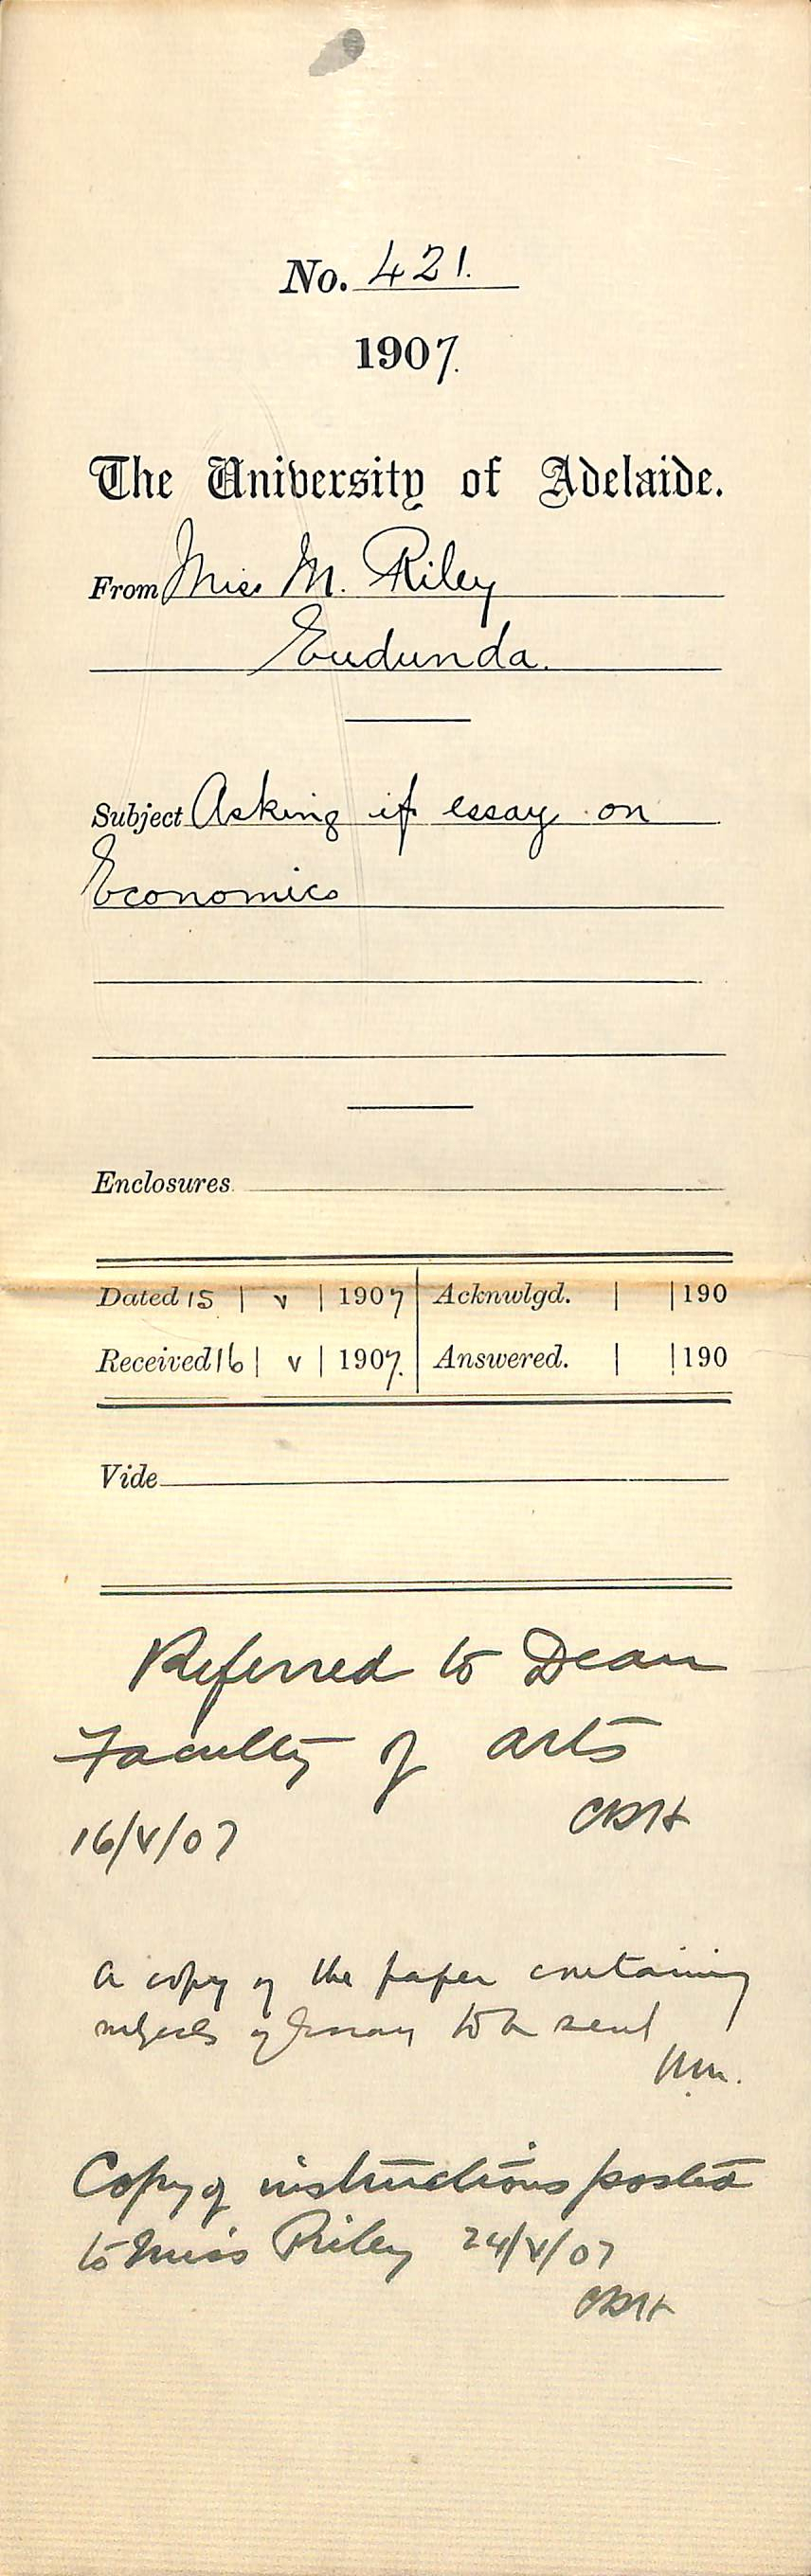 No. 421.
1907.
The University of Adelaide.
From Miss M. Riley
Eudunda.
Subject Asking if essay on
Economics
Enclosures
Dated 15 | v | 1907 | Acknwlgd. | | 190
Received 16 | v | 1907. | Answered. | | 190
Vide
Referred to Dean
Faculty of arts
CRH
16/V/07
A copy of the paper containing
subjects of Essay to be sent
Copy of instructions posted
to Miss Riley 24/V/07
CRH